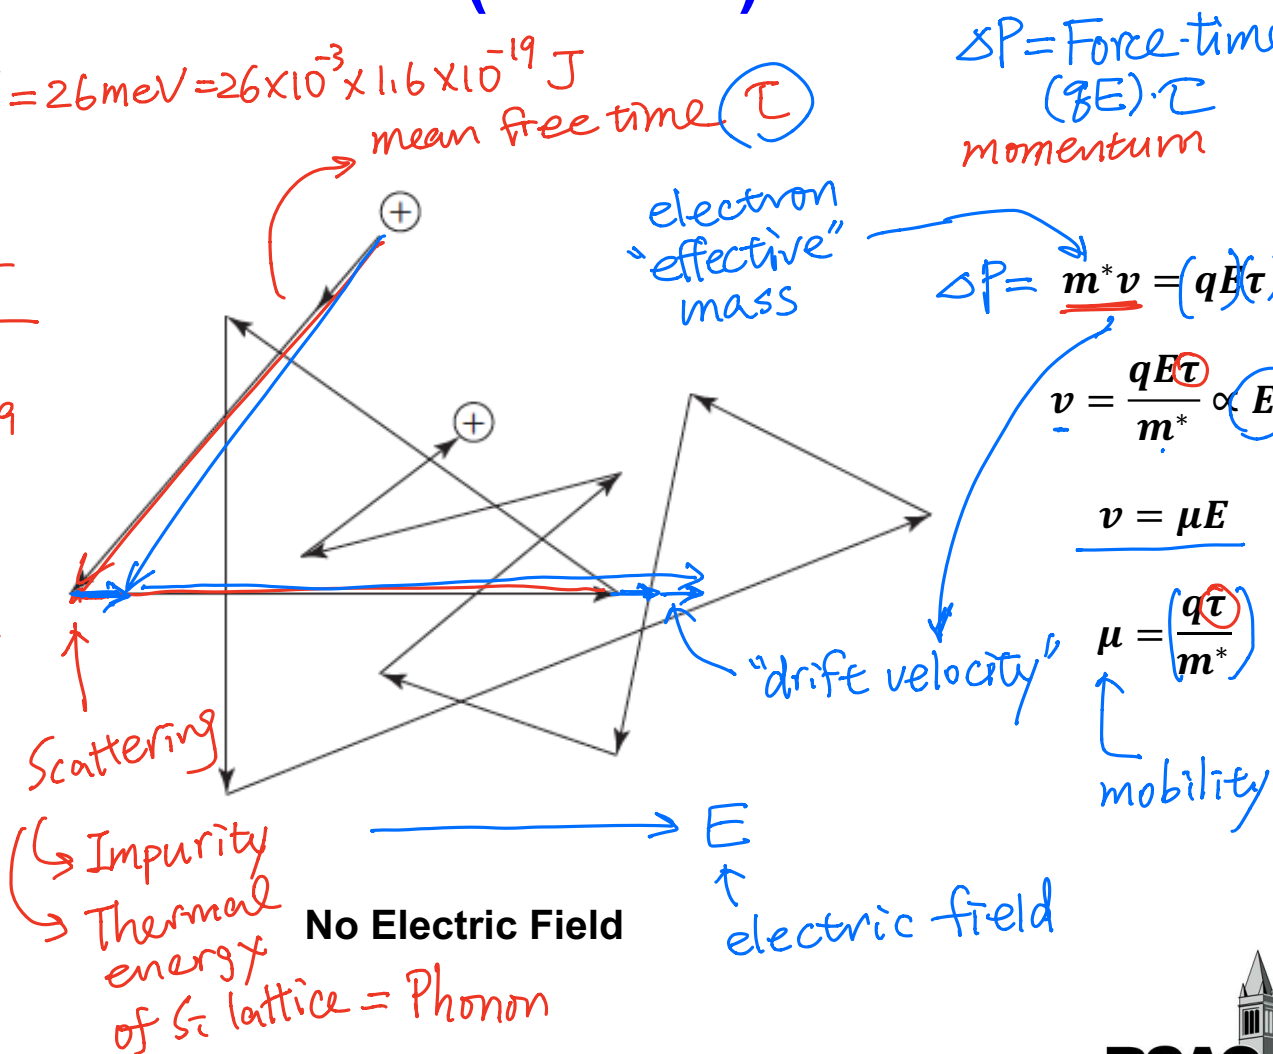 = 26meV = 26×10⁻³ × 1.6 ×10⁻¹⁹ J
mean free time τ
ΔP = Force·time
(qE)·τ
momentum
+
electron
"effective"
mass
ΔP = m*v = (qE)(τ)
v = qEτ / m* ∝ E
9
+
v = μE
μ = (qτ / m*)
"drift velocity"
mobility
Scattering
Impurity
Thermal
energy
of Si lattice = Phonon
E
electric field
No Electric Field